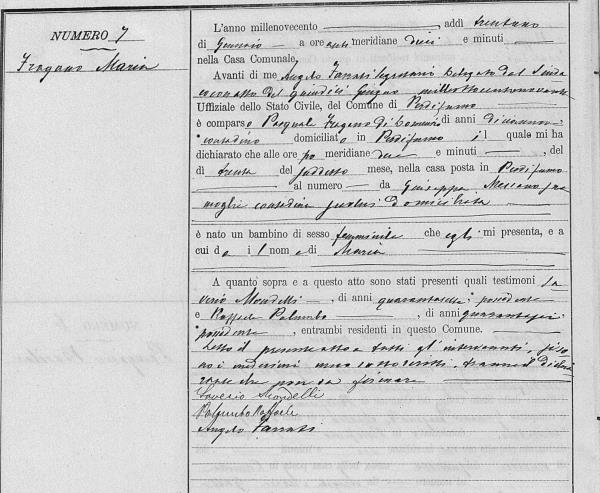 NUMERO 7
Fragano Maria
L'anno millenovecento, addì trentuno
di Gennaio a ore anti meridiane dieci e minuti
nella Casa Comunale.
Avanti di me Angelo Farrati Segretario Delegato dal Sinda
co con atto del quindici Giugno millottocentonovanta
Uffiziale dello Stato Civile, del Comune di Perdifumo
è comparso Pasquale di anni
contadino domiciliato in Perdifumo il quale mi ha
dichiarato che alle ore po meridiane due e minuti, del
dì trenta del suddetto mese, nella casa posta in Perdifumo
al numero da Giuseppa sua
moglie contadina domiciliata
è nato un bambino di sesso femminile che egli mi presenta, e a
cui dà il nome di Maria
A quanto sopra e a questo atto sono stati presenti quali testimoni Sa
verio Mondelli, di anni possidente
e Raffaele Palumbo, di anni quarantasei
possidente, entrambi residenti in questo Comune.
Letto il presente atto a tutti gl'intervenuti,
i medesimi meco sottoscritti, tranne il dichia
rante che non sa firmare
Saverio Mondelli
Palumbo Raffaele
Angelo Farrati